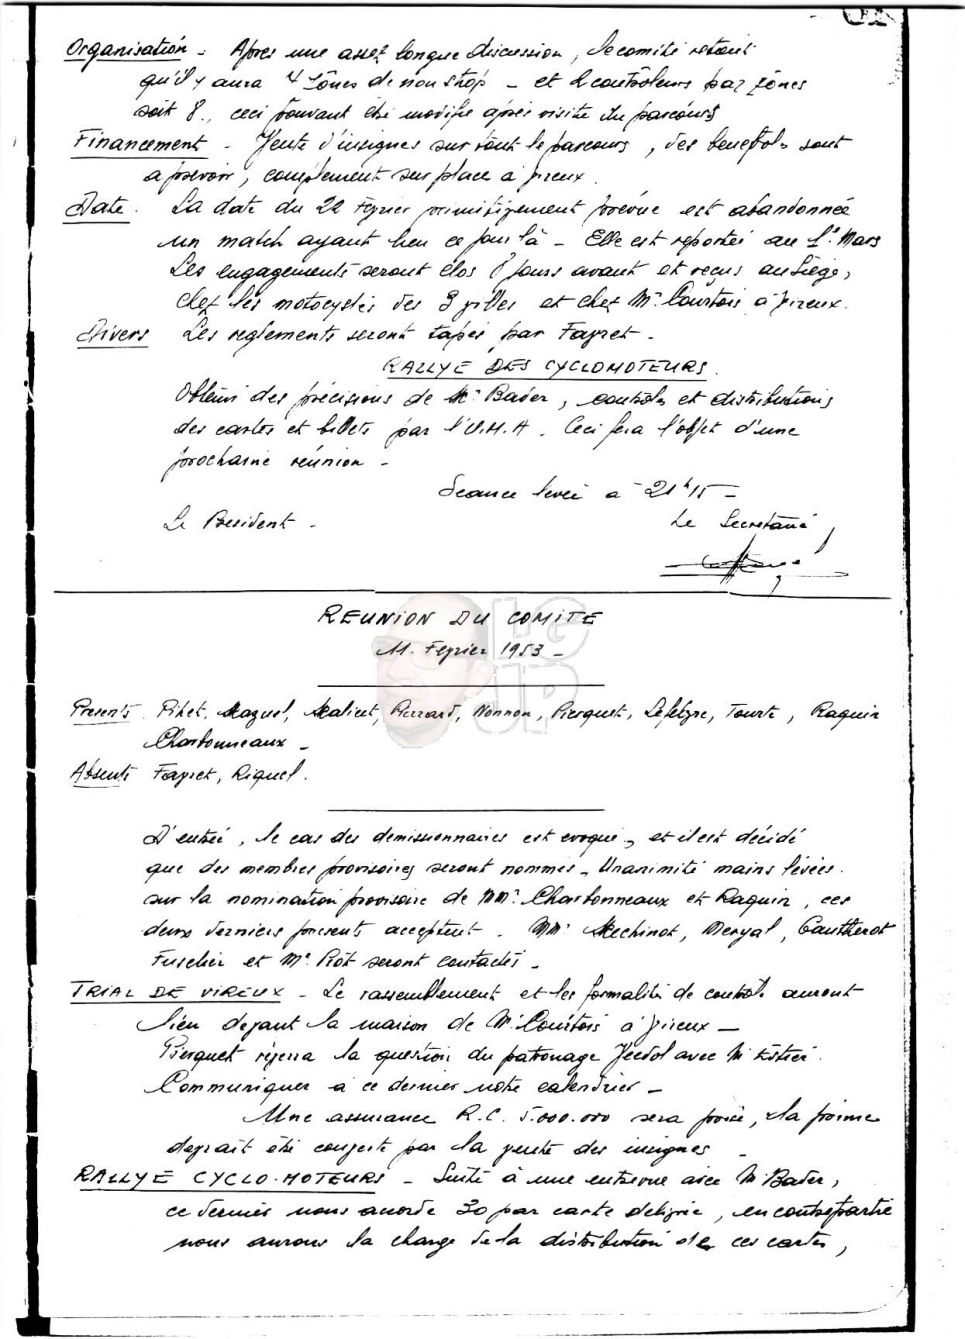 Organisation - Après une assez longue discussion, le comité retient
qu'il y aura 4 zônes de non stop - et 2 contrôleurs par zônes
soit 8., ceci pouvant être modifié après visite du parcours
Financement - Vente d'insignes sur tout le parcours, des sont
a prevoir, complement sur place à Vireux.
Date. La date du 22 Fevrier primitivement prévue est abandonnée
un match ayant lieu ce jour là - Elle est reportée au 1er Mars
Les engagements seront clos 8 jours avant et reçus au Siège,
chez les motocystes des 3 villes et chez Mr Courtois à Vireux.
Divers Les reglements seront tapés par Fayret.
RALLYE DES CYCLOMOTEURS.
Obtenir des précisions de Mr Bader, contrôles et distributions
des cartes et billets par l'U.M.A. Ceci fera l'objet d'une
prochaine réunion -
Seance levée a 21h15 -
Le President - Le Secretaire,
REUNION DU COMITE
11. Fevrier 1953 -
LG
JP
Presents Pihet, Mazuel, Malicet, Perrard, Nonnon, Pierquet, Lefebvre, Tourte, Raquin
Charbonneaux -
Absents Fayret, Riquel.
D'entrée, le cas des demissionnaires est evoqué, et il est décidé
que des membres provisoires seront nommés - Unanimité mains levées.
sur la nomination provisoire de MM. Charbonneaux et Raquin, ces
deux derniers presents acceptent. MM. Mechinot, Derval, Gautherot
Fuselier et Mr Piot seront contactés -
TRIAL DE VIREUX - Le rassemblement et les formalités de contrôle auront
lieu devant la maison de Mr Courtois à Vireux -
Pierquet réglera la question du patronage Veedol avec Mr
Communiquer à ce dernier notre calendrier -
Une assurance R.C. 5.000.000 sera prise, la prime
devrait être couverte par la vente des insignes -
RALLYE CYCLO-MOTEURS - Suite à une entrevue avec Mr Bader,
ce dernier nous accorde 30 par carte délivrée, en contrepartie
nous aurons la charge de la distribution de ces cartes,